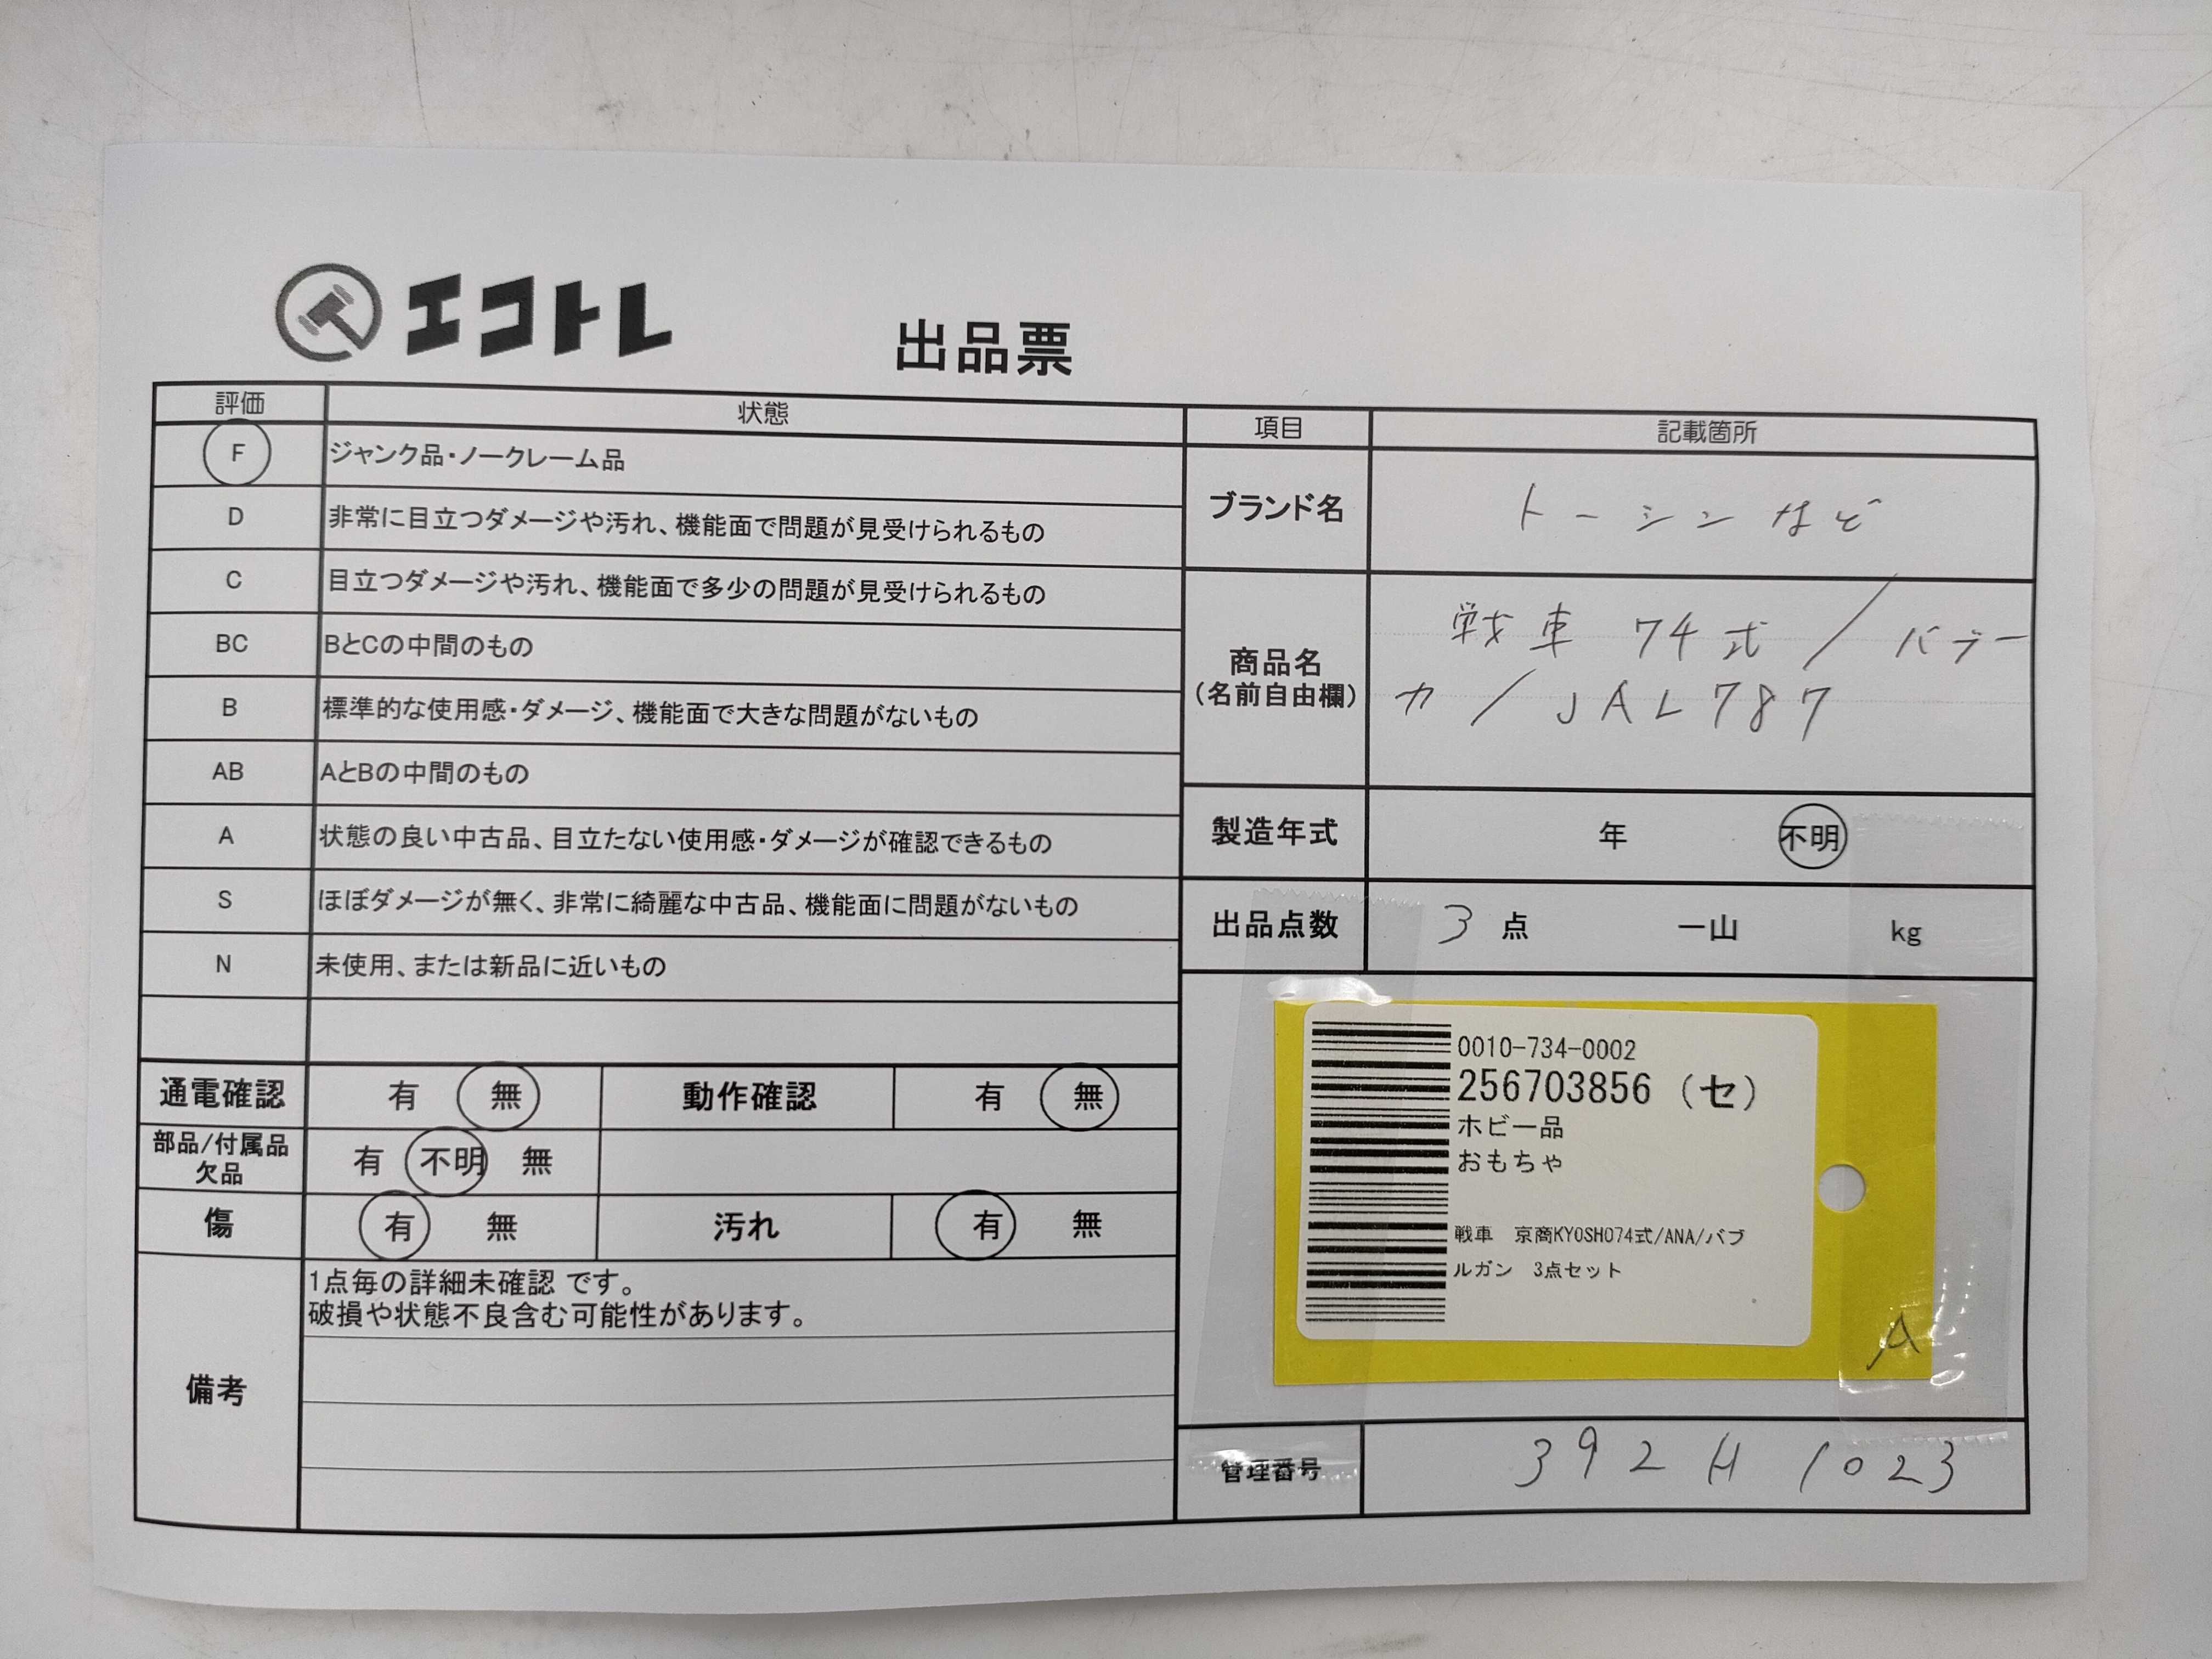 エコトレ
出品票
評価 状態
F ジャンク品・ノークレーム品
D 非常に目立つダメージや汚れ、機能面で問題が見受けられるもの
C 目立つダメージや汚れ、機能面で多少の問題が見受けられるもの
BC BとCの中間のもの
B 標準的な使用感・ダメージ、機能面で大きな問題がないもの
AB AとBの中間のもの
A 状態の良い中古品、目立たない使用感・ダメージが確認できるもの
S ほぼダメージが無く、非常に綺麗な中古品、機能面に問題がないもの
N 未使用、または新品に近いもの
通電確認 有 無 動作確認 有 無
部品/付属品
欠品
有 不明 無
傷 有 無 汚れ 有 無
備考
1点毎の詳細未確認 です。
破損や状態不良含む可能性があります。
項目 記載箇所
ブランド名 トーシンなど
商品名
(名前自由欄)
戦車 74式 / バブー
カ / JAL787
製造年式 年 不明
出品点数 3 点 一山 kg
0010-734-0002
256703856 (セ)
ホビー品
おもちゃ
戦車 京商KYOSHO74式/ANA/バブ
ルガン 3点セット
A
管理番号 392H 1023